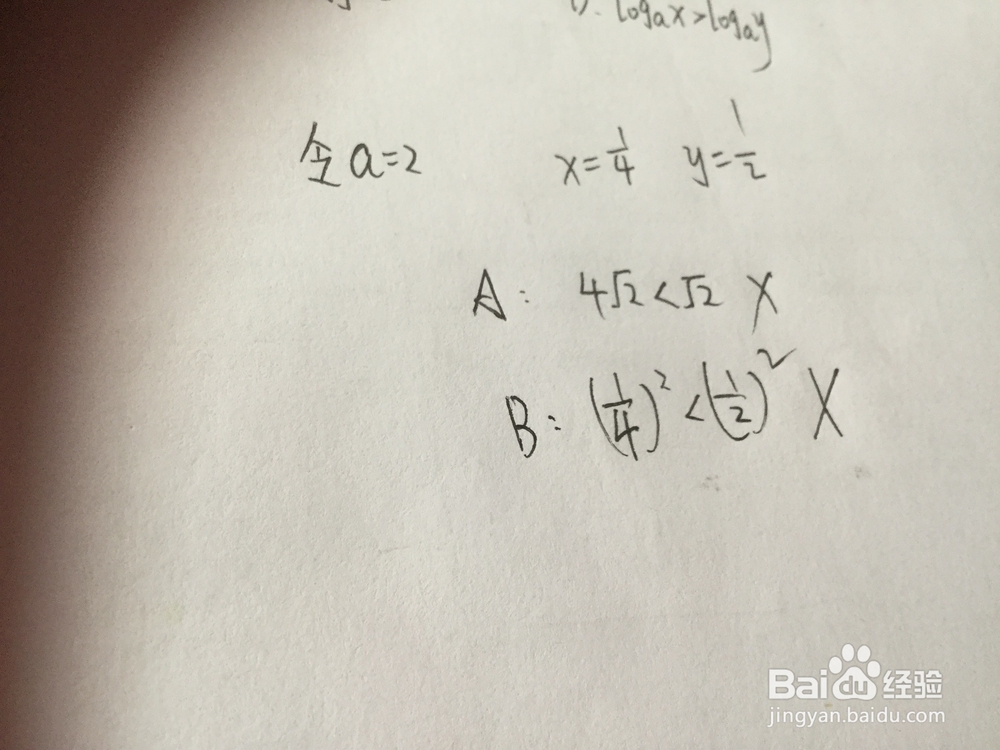 D. logₐx>logₐy
令a=2 x=1/4 y=1/2
A: 4√2<√2 X
B: (1/4)²<(1/2)² X
Baidu经验
jingyan.baidu.com